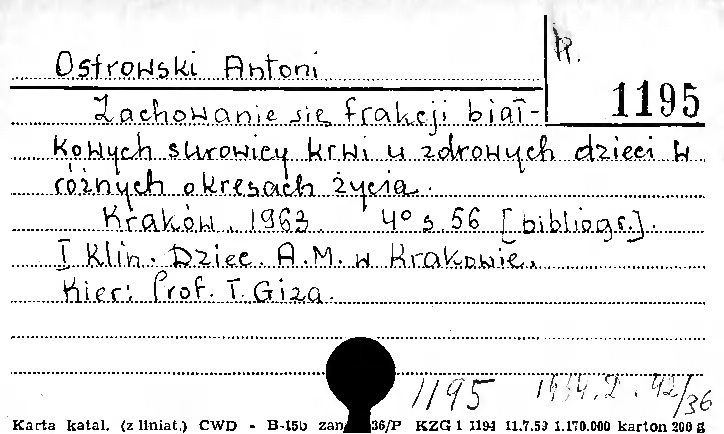 R.
Ostrowski Antoni
1195
Zachowanie się frakcji biał-
kowych surowicy krwi u zdrowych dzieci w
różnych okresach życia.
Kraków. 1963. 4° s. 56 [bibliogr.].
I Klin. Dziec. A.M. w Krakowie.
Kier: Prof. T. Giza.
1195
Karta katal. (z liniat.) CWD - B-15b zam. 36/P KZG 1 1194 11.7.59 1.170.000 karton 200 g